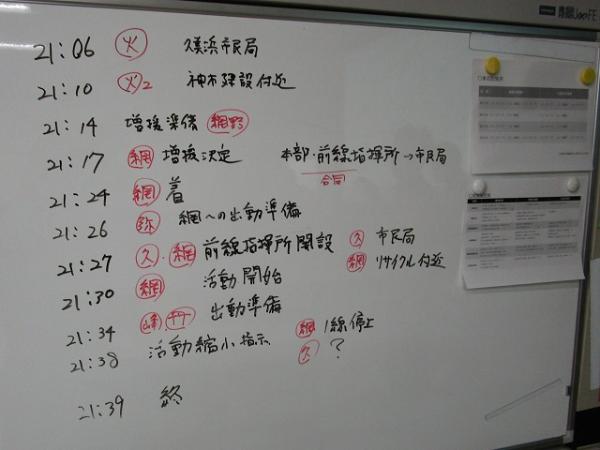 21:06 火 久美浜市民局
21:10 火2 神木建設付近
21:14 増援準備 網野
21:17 網 増援決定 本部・前線指揮所→市民局
合同
21:24 網 着
21:26 弥 網への出動準備
21:27 久・網 前線指揮所開設 久 市民局
21:30 網 活動開始 網 リサイクル付近
21:34 峰 丹 出動準備
21:38 活動縮小指示 網 1線停止
久 ?
21:39 終